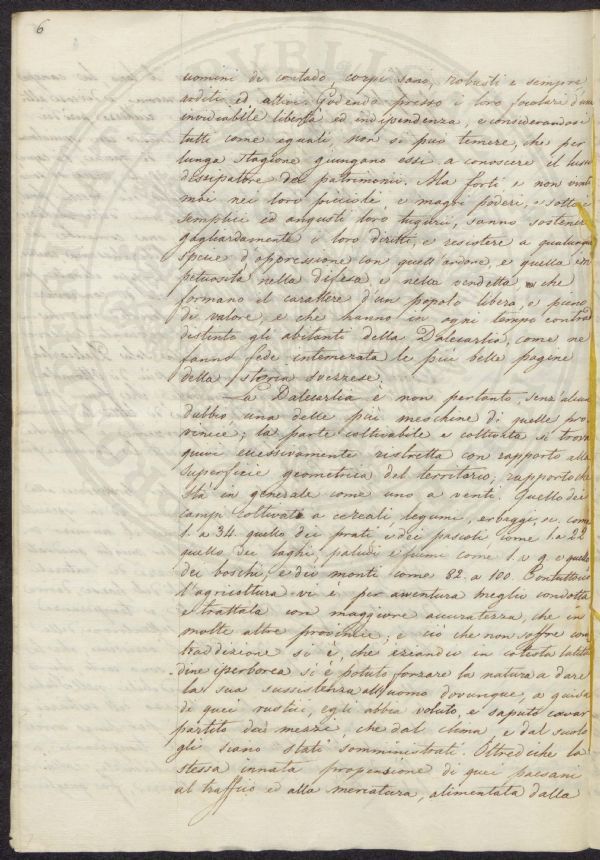 6
uomini di contado corpi sani, robusti e sempre
arditi ed attivi. Godendo presso i loro focolari d'una
invidiabile libertà ed indipendenza, e considerandosi
tutti come eguali, non si può temere, che per
lunga stagione giungano essi a conoscere il lusso
dissipatore dei patrimonii. Ma forti e non vinti
mai nei loro piccioli e magri poderi, e sotto i
semplici ed angusti loro tugurii, sanno sostenere
gagliardamente i loro diritti, e resistere a qualunque
specie d'oppressione con quell'ardore, e quella im
petuosità nella difesa e nella vendetta, che
formano il carattere d'un popolo libero, e pieno
di valore, e che hanno in ogni tempo contra
distinto gli abitanti della Dalecarlia, come ne
fanno fede intemerata le più belle pagine
della storia svezzese.
La Dalecarlia è non pertanto, senz'alcun
dubbio una delle più meschine di quelle pro
vincie; la parte coltivabile e coltivata si trova
quivi eccessivamente ristretta con rapporto alla
superficie geometrica del territorio, rapporto che
sta in generale come uno a venti. Quello dei
campi coltivati a cereali, legumi, erbaggi, ec. come
1. a 34. quello dei prati e dei pascoli come 1. a 22
quello dei laghi, paludi e fiumi come 1. a 9. e quello
dei boschi, e dei monti come 82. a 100. Contuttociò
l'agricoltura vi è per avventura meglio condotta
e trattata con maggiore accuratezza, che in
molte altre provincie; e ciò che non soffre con
traddizione si è, che eziandio in cotesta latitu
dine iperborea si è potuto forzare la natura a dare
la sua sussistenza all'uomo dovunque, a guisa
di quei rustici, egli abbia voluto, e saputo cavar
partito dai mezzi, che dal clima e dal suolo
gli siano stati somministrati. Oltrediche la
stessa innata propensione di quei paesani
al traffico ed alla mercatura, alimentata dalla